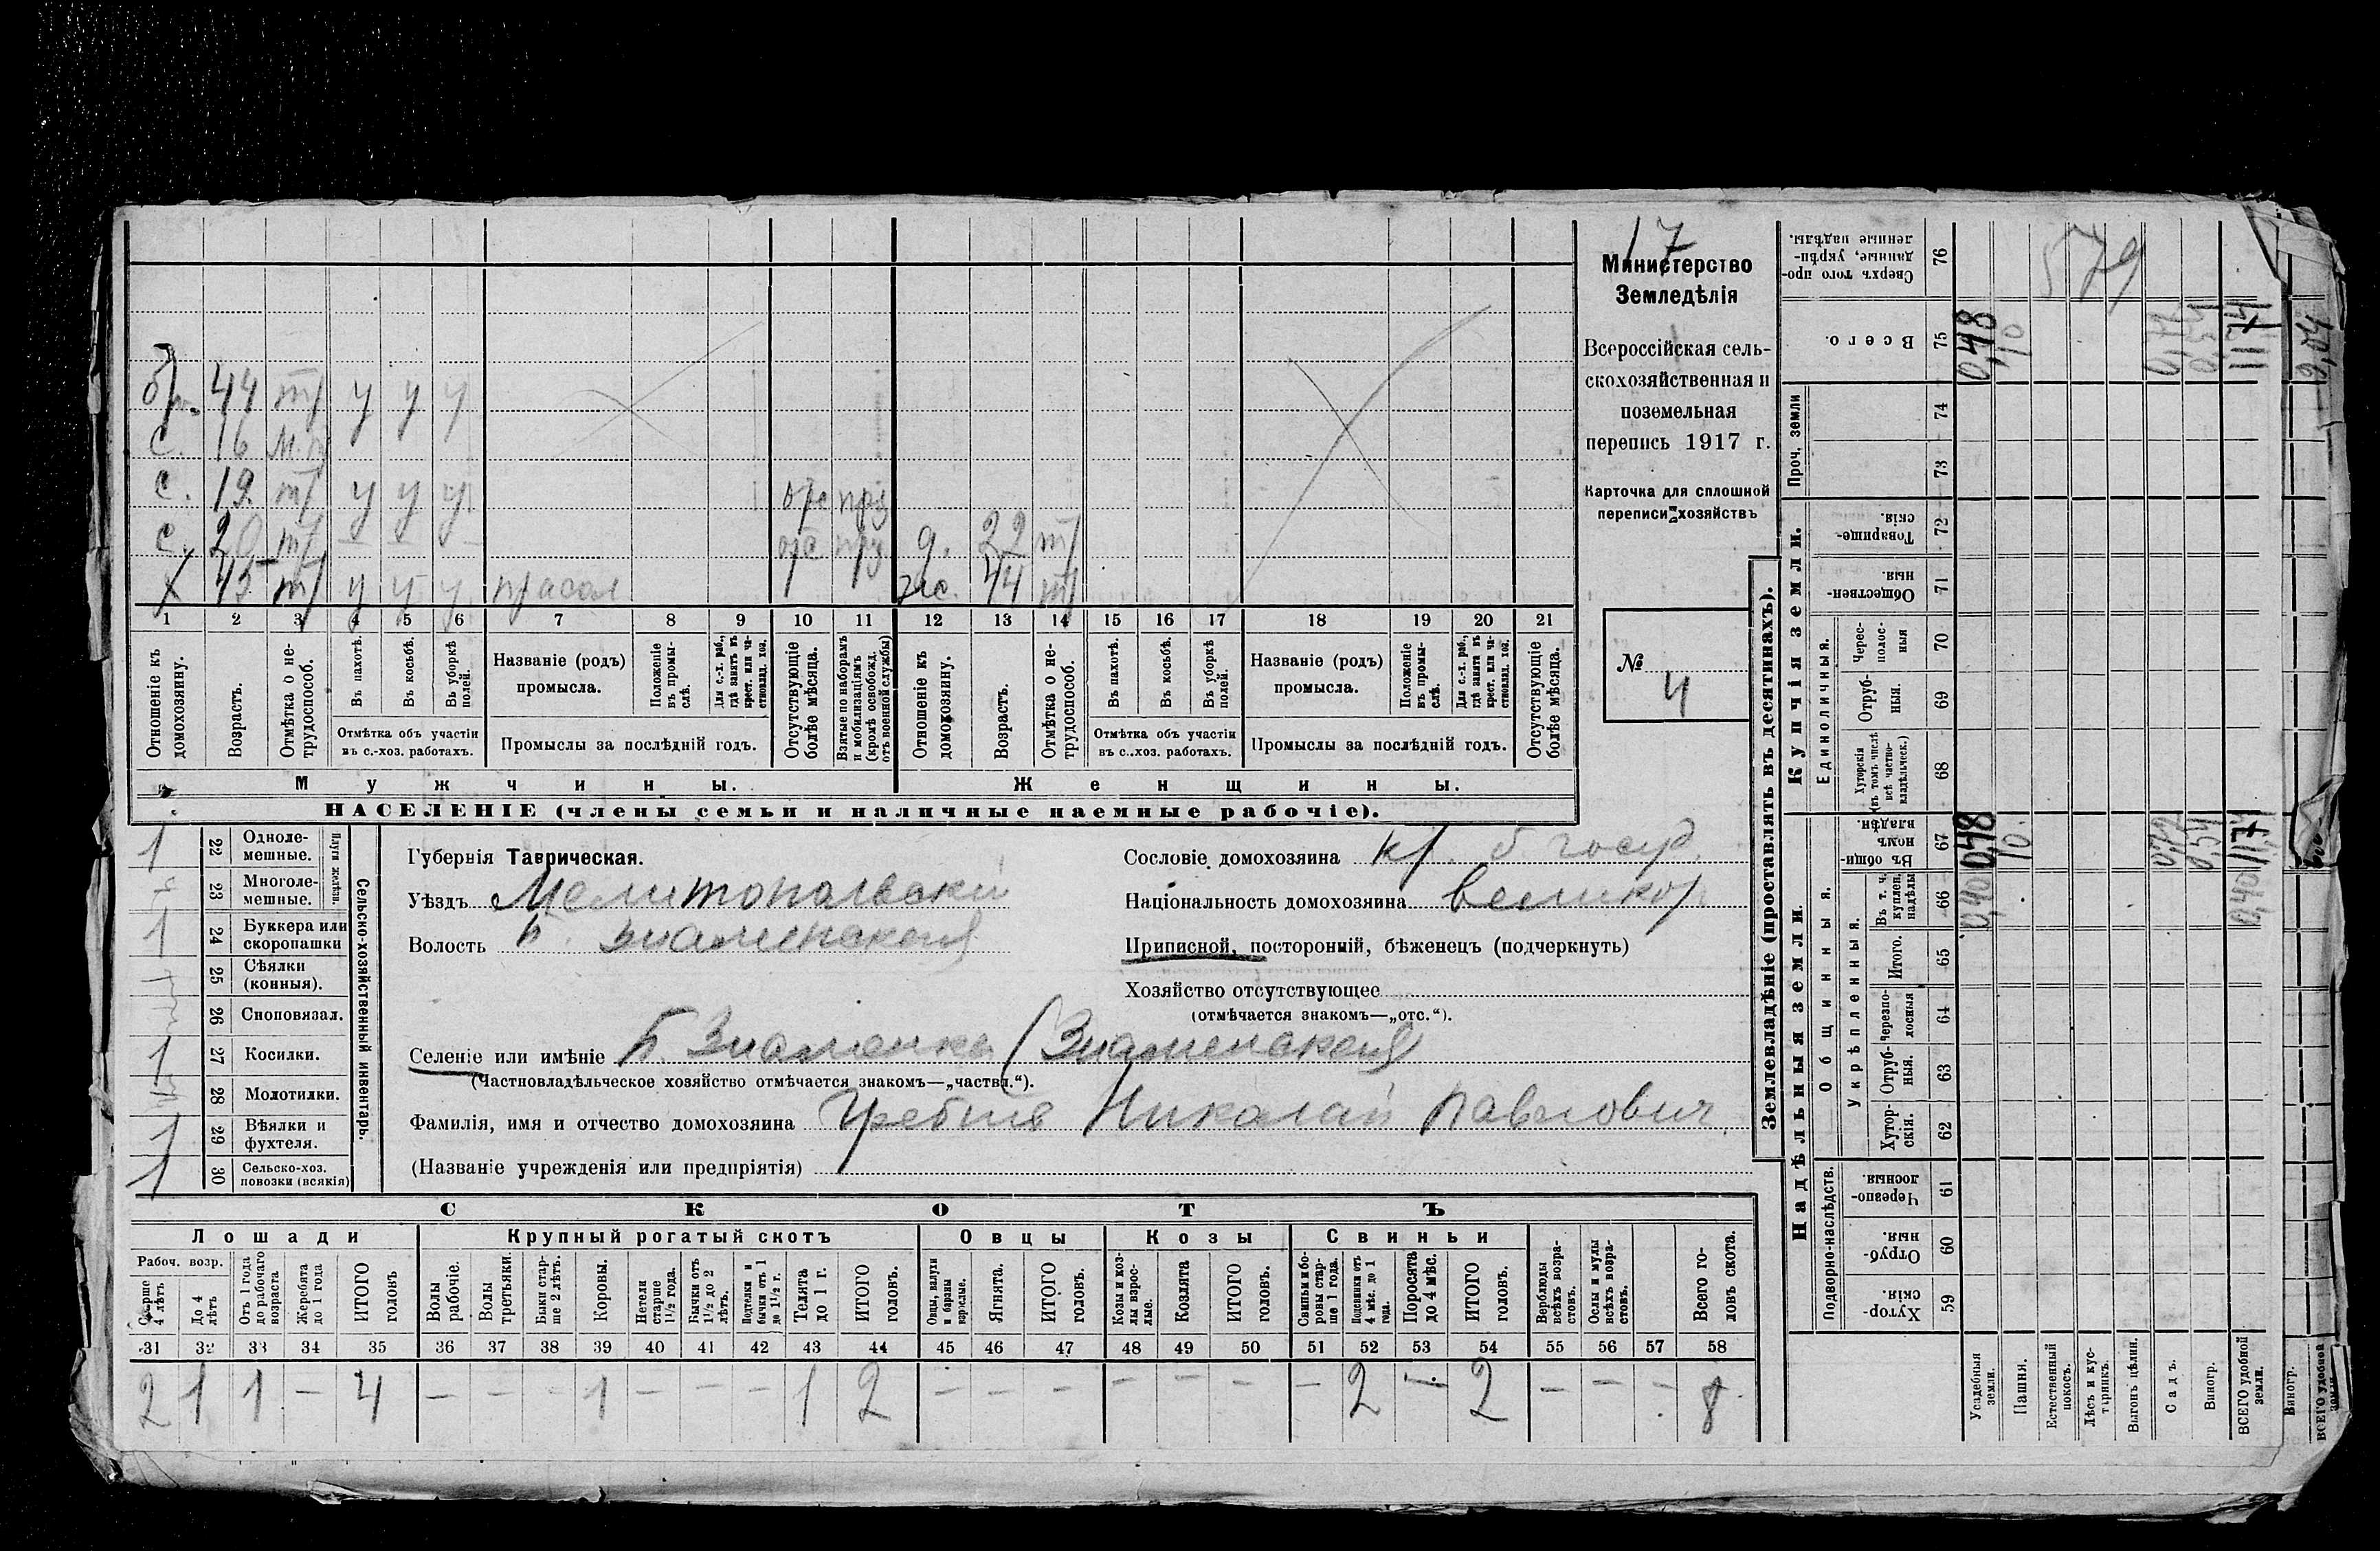 17
Министерство
Земледѣлія
Всероссійская сель-
скохозяйственная и
поземельная
перепись 1917 г.
Карточка для сплошной
переписи хозяйствъ
№
4
44 т у у у
с. 16
с. 19. т у у у
с. 20 т д. 22 т
х 45 т у у у прасол ж. 44 т
1 2 3 4 5 6 7 8 9 10 11 12 13 14 15 16 17 18 19 20 21
Отношеніе къ домохозяину.
Возрастъ.
Отмѣтка о не-трудоспособ.
Въ пахотѣ.
Въ косьбѣ.
Въ уборкѣ полей.
Отмѣтка объ участіи
въ с.-хоз. работахъ.
Названіе (родъ)
промысла.
Положеніе въ промы-слѣ.
Для с.-х. раб., гдѣ занятъ въ крест. или ча-стновлад. хоз.
Промыслы за послѣдній годъ.
Отсутствующіе болѣе мѣсяца.
Взятые по наборамъ и мобилизаціямъ (кромѣ освобожд. отъ военной службы)
Отношеніе къ домохозяину.
Возрастъ.
Отмѣтка о не-трудоспособ.
Въ пахотѣ.
Въ косьбѣ.
Въ уборкѣ полей.
Отмѣтка объ участіи
въ с.-хоз. работахъ.
Названіе (родъ)
промысла.
Положеніе въ промы-слѣ.
Для с.-х. раб., гдѣ занята въ крест. или ча-стновлад. хоз.
Промыслы за послѣдній годъ.
Отсутствующіе болѣе мѣсяца.
Мужчины. Женщины.
НАСЕЛЕНІЕ (члены семьи и наличные наемные рабочіе).
Сельско-хозяйственный инвентарь.
Плуги желѣзн.
1 22 Одноле-мешные.
23 Многоле-мешные.
1 24 Буккера или скоропашки
25 Сѣялки (конныя).
26 Сноповязал.
1 27 Косилки.
28 Молотилки.
1 29 Вѣялки и фухтеля.
1 30 Сельско-хоз. повозки (всякія)
Губернія Таврическая.
Уѣздъ Мелитопольскій
Волость Б. Знаменская
Сословіе домохозяина кр. б. госуд.
Національность домохозяина великор
Приписной, посторонній, бѣженецъ (подчеркнуть)
Хозяйство отсутствующее
(отмѣчается знакомъ—„отс.“).
Селеніе или имѣніе Б. Знаменка (Знаменская)
(Частновладѣльческое хозяйство отмѣчается знакомъ—„частвл.“).
Фамилія, имя и отчество домохозяина Николай Павлович
(Названіе учрежденія или предпріятія)
СКОТЪ
Лошади Крупный рогатый скотъ Овцы Козы Свиньи
Рабоч. возр.
Старше 4 лѣтъ
До 4 лѣтъ
Отъ 1 года до рабочаго возраста
Жеребята до 1 года
ИТОГО головъ
Волы рабочіе.
Волы третьяки.
Быки стар-ше 2 лѣтъ.
Коровы.
Нетели старше 1½ года.
Бычки отъ 1½ до 2 лѣтъ.
Подтелки и бычки отъ 1 до 1½ г.
Телята до 1 г.
ИТОГО головъ.
Овцы, валухи и бараны взрослые.
Ягнята.
ИТОГО головъ.
Козы и коз-лы взрос-лые.
Козлята
ИТОГО головъ.
Свиньи и бо-ровы стар-ше 1 года.
Подсвинки отъ 4 мѣс. до 1 года.
Поросята до 4 мѣс.
ИТОГО головъ.
Верблюды всѣхъ возра-стовъ.
Ослы и мулы всѣхъ возра-стовъ.
Всего го-ловъ скота.
31 32 33 34 35 36 37 38 39 40 41 42 43 44 45 46 47 48 49 50 51 52 53 54 55 56 57 58
2 1 1 — 4 — — — 1 — — — 1 2 — — — — — — — 2 — 2 — — — 8
Землевладѣніе (проставлять въ десятинахъ).
Надѣльныя земли. Купчія земли. Проч. земли
Подворно-наслѣдств.
Общинныя.
Укрѣпленныя.
Единоличныя.
Сверхъ того про-данные, укрѣп-ленные надѣлы. 76
Всего. 75
74
73
Товарище-скія. 72
Обществен-ныя. 71
Черес-полос-ныя 70
Отруб-ныя. 69
Хуторскія (въ томъ числѣ всѣ частно-владѣльческ.) 68
Въ общи-номъ владѣн. 67
Въ т. ч. куплен. надѣлы 66
Итого. 65
Черезпо-лосныя 64
Отруб-ныя. 63
Хутор-скія. 62
Черезпо-лосныя. 61
Отруб-ныя. 60
Хутор-скія. 59
Усадебныя земли.
Пашня.
Естественный покосъ.
Лѣсъ и кус-тарникъ.
Выгонъ цѣлин.
Садъ.
Виногр.
ВСЕГО удобной земли.
Виногр.
ВСЕГО удобной земли.
579
0,48
10
11,74
0,48
10
0,40
0,40